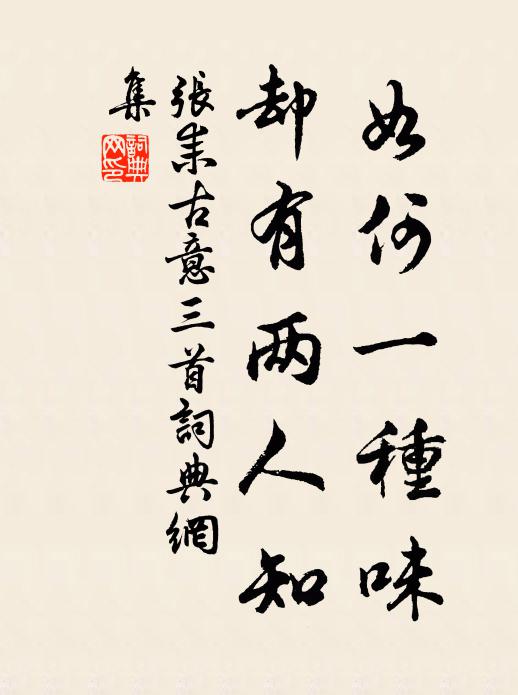 如何一種味
却有两人知
張耒古意三首詞典網
集
詞典网印